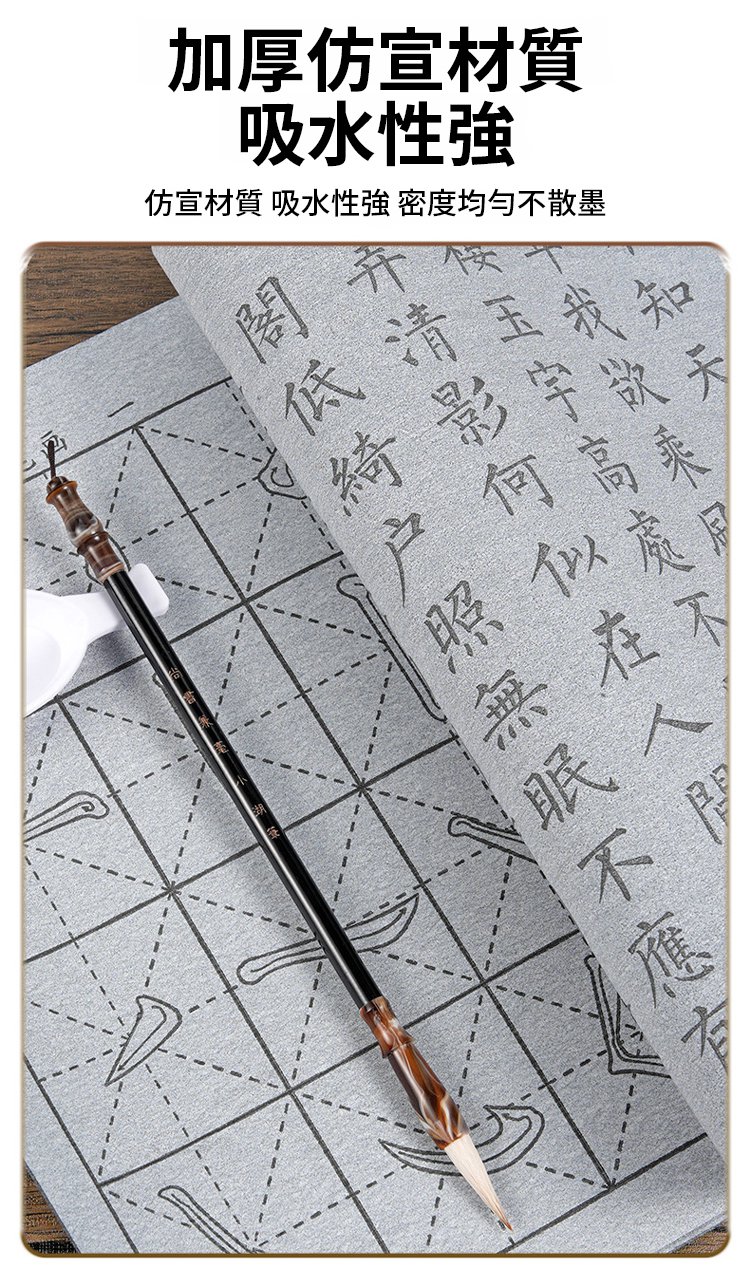 加厚仿宣材質
吸水性強
仿宣材質 吸水性強 密度均勻不散墨
知天
我欲乘風
玉宇高處不
弄清影何似在人間
閣低綺户照無眠不應有
一
画
尚書兼毫小湖筆